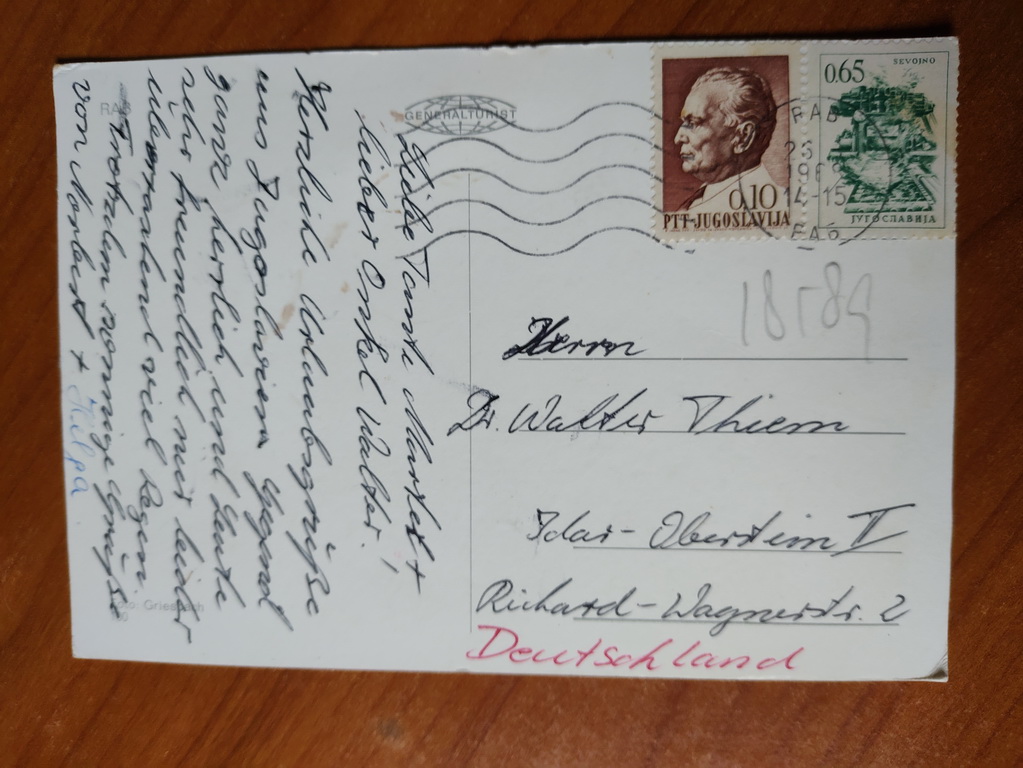 RAB
GENERALTURIST
Liebe Tante Markt +
lieber Onkel Walter!
Herzliche Urlaubsgrüße
aus Jugoslavien. Gegend
ganz herrlich und Leute
sehr freundlich nur leider
viel Regen.
Trotzdem sonnige Grüße
von Norbert + Helga
Foto: Griesbach
0.10
PTT-JUGOSLAVIJA
0.65
SEVOJNO
ЈУГОСЛАВИЈА
RAB
14-15
RAB
18584
Herrn
Dr. Walter Thiem
Idar-Oberstein II
Richard-Wagnerstr. 2
Deutschland